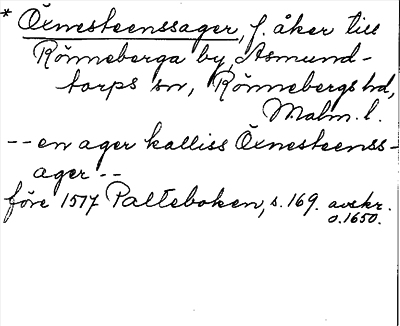 * Öxnesteenssager, f. åker till
Rönneberga by, Asmund-
torps sn, Rönnebergs hd,
Malm. l.
-- en ager kalliss Öxnesteenss-
ager --
före 1517 Palteboken, s. 169. avskr.
o. 1650.